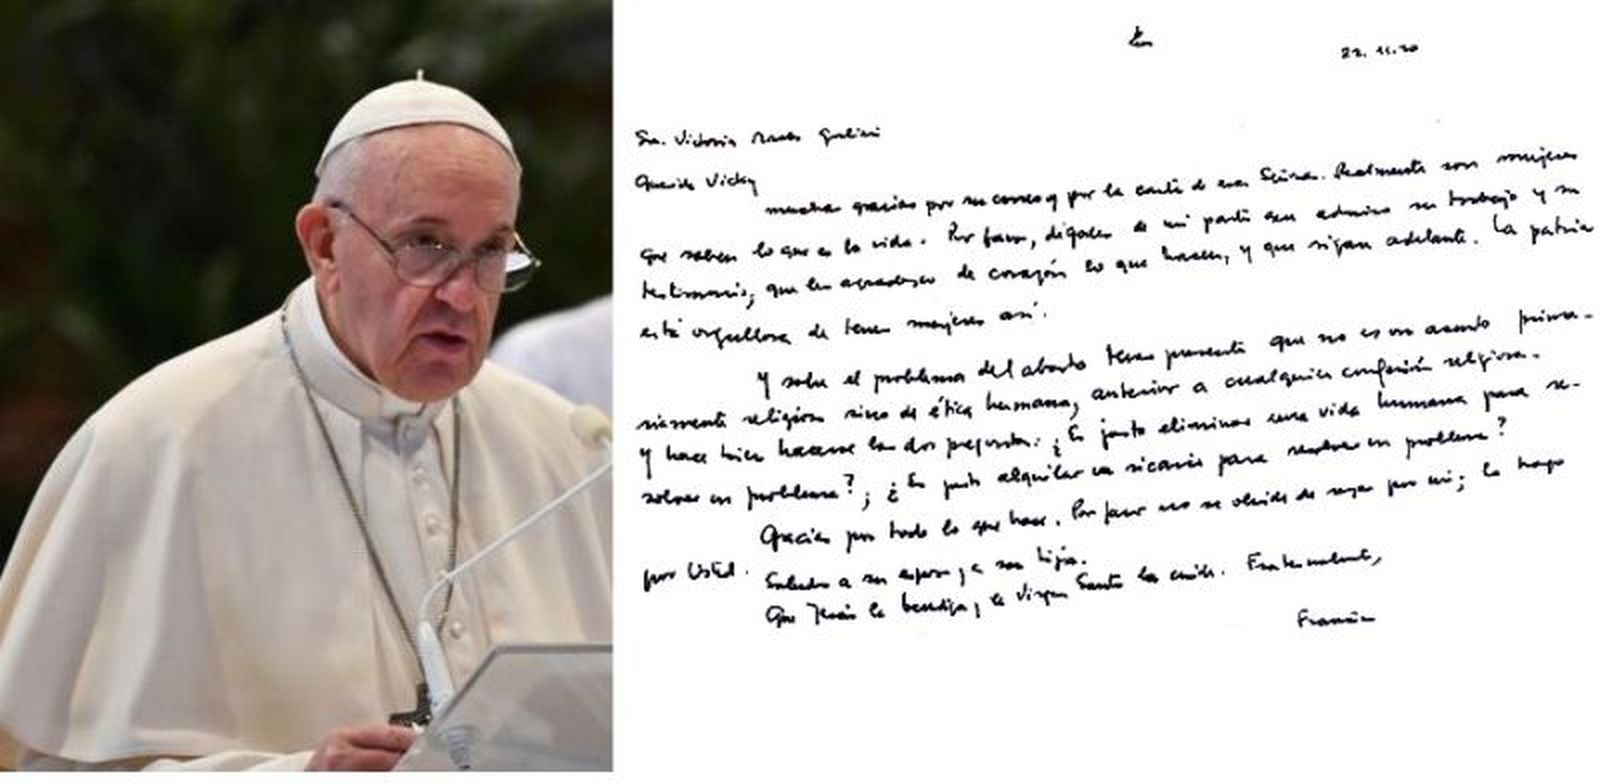 22.11.20
Sra. Victoria Morales Gorleri
Querida Vicky
muchas gracias por su correo y por la carta de esas Señoras. Realmente son mujeres
que saben lo que es la vida. Por favor, dígales de mi parte que admiro su trabajo y su
testimonio; que les agradezco de corazón lo que hacen, y que sigan adelante. La patria
está orgullosa de tener mujeres así.
Y sobre el problema del aborto tener presente que no es un asunto prima-
riamente religioso sino de ética humana, anterior a cualquier confesión religiosa.
Y hace bien hacerse las dos preguntas: ¿Es justo eliminar una vida humana para re-
solver un problema?; ¿Es justo alquilar un sicario para resolver un problema?
Gracias por todo lo que hace. Por favor no se olvide de rezar por mí; lo hago
por Usted.
Saludos a su esposo y a su hija.
Que Jesús la bendiga y la Virgen Santa la cuide. Fraternalmente,
Francisco